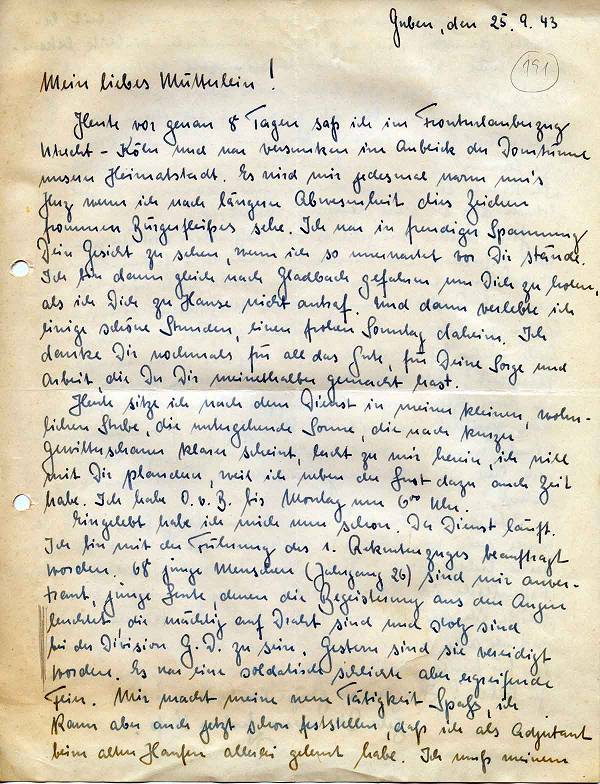 Guben, den 25.9.43
191
Mein liebes Mütterlein!
Heute vor genau 8 Tagen saß ich im Fronturlauberzug
Utrecht - Köln und war versunken im Anblick der Domtürme
unserer Heimatstadt. Es wird mir jedesmal warm um's
Herz wenn ich nach längerer Abwesenheit dies Zeichen
frommen Bürgerfleißes sehe. Ich war in freudiger Spannung
Dein Gesicht zu sehen, wenn ich so unerwartet vor Dir stände.
Ich bin dann gleich nach Gladbach gefahren um Dich zu holen,
als ich Dich zu Hause nicht antraf. Und dann verlebte ich
einige schöne Stunden, einen frohen Sonntag daheim. Ich
danke Dir nochmals für all das Gute, für Deine Sorge und
Arbeit, die Du Dir meinethalben gemacht hast.
Heute sitze ich nach dem Dienst in meiner kleinen, wohn-
lichen Stube, die untergehende Sonne, die nach kurzen
Gewitterschauern klarer scheint, lacht zu mir herein, ich will
mit Dir plaudern, weil ich neben der Lust dazu auch Zeit
habe. Ich habe O.v.D. bis Montag um 6⁰⁰ Uhr.
Eingelebt habe ich mich nun schon. Der Dienst läuft.
Ich bin mit der Führung des 1. Rekrutenzuges beauftragt
worden. 68 junge Menschen (Jahrgang 26) sind mir anver-
traut, junge Leute, denen die Begeisterung aus den Augen
leuchtet, die mächtig auf Draht sind und stolz sind
bei der Division G.D. zu sein. Gestern sind sie vereidigt
worden. Es war eine soldatisch schlichte aber ergreifende
Feier. Mir macht meine neue Tätigkeit Spaß, ich
kann aber auch jetzt schon feststellen, daß ich als Adjutant
beim alten Haufen allerlei gelernt habe. Ich muß meinem